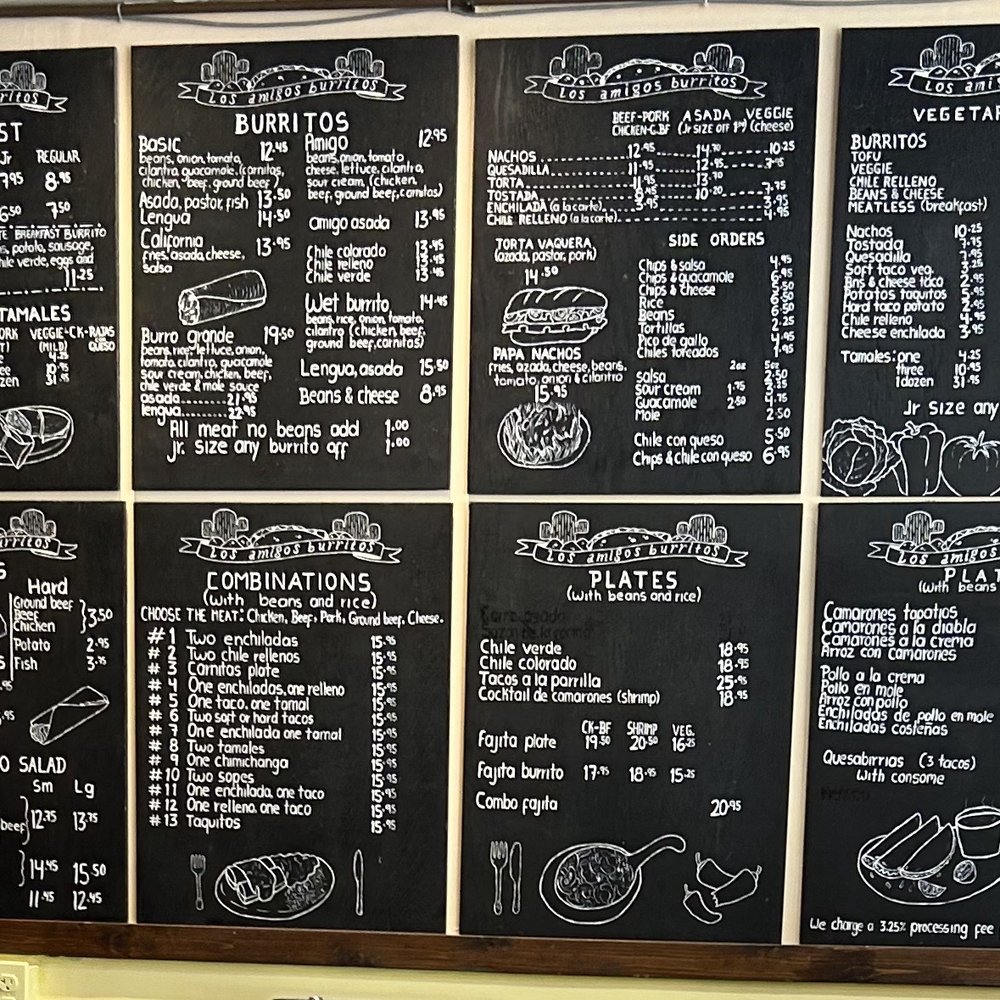 ritos
ST
Jr REGULAR
7.95 8.95
6.50 7.50
TE BREAKFAST BURRITO
s, potato, sausage,
hile verde, eggs and
11.25
TAMALES
ORK VEGGIE-CK-RAJAS
(MILD) CON QUESO
4.25
ee 10.95
zen 31.95
Los amigos burritos
BURRITOS
Basic 12.45
beans, onion, tomato,
cilantro, guacamole, (carnitas,
chicken, beef, ground beef)
Asada, pastor, fish 13.50
Lengua 14.50
California 13.95
fries, asada, cheese,
salsa
Burro grande 19.50
beans, rice, lettuce, onion,
tomato, cilantro, guacamole
sour cream, chicken, beef,
chile verde & mole sauce
asada.......... 21.95
lengua.......... 22.95
Amigo 12.95
beans, onion, tomato
cheese, lettuce, cilantro,
sour cream, (chicken,
beef, ground beef, carnitas)
Amigo asada 13.95
Chile colorado 13.95
Chile relleno 13.45
Chile verde 13.95
Wet burrito 14.45
beans, rice, onion, tomato,
cilantro (chicken, beef,
ground beef, carnitas)
Lengua, asada 15.50
Beans & cheese 8.95
All meat no beans add 1.00
Jr. size any burrito off 1.00
Los amigos burritos
BEEF-PORK ASADA VEGGIE
CHICKEN-G.BF (Jr SIZE OFF 1.00) (cheese)
NACHOS 12.95 14.70 10.25
QUESADILLA 11.95 12.95 7.95
TORTA 11.95 13.70
TOSTADA 8.45 10.20 7.75
ENCHILADA (a la carte) 3.95 3.95
CHILE RELLENO (a la carte) 4.95
TORTA VAQUERA
(azada, pastor, pork)
14.50
PAPA NACHOS
fries, azada, cheese, beans,
tomato, onion & cilantro
15.95
SIDE ORDERS
Chips & salsa 4.95
Chips & guacamole 6.95
Chips & cheese 5.50
Rice 6.50
Beans 6.50
Tortillas 2.25
Pico de gallo 4.95
Chiles toreados 1.95
2oz 5oz
Salsa 2.50
Sour cream 1.75 3.25
Guacamole 2.50 4.75
Mole 2.50
Chile con queso 5.50
Chips & Chile con queso 6.95
Los ami
VEGETAR
BURRITOS
TOFU
VEGGIE
CHILE RELLENO
BEANS & CHEESE
MEATLESS (breakfast)
Nachos 10.25
Tostada 7.75
Quesadilla 7.95
Soft taco veg. 3.25
Bns & cheese taco 2.95
Potatos taquitos 2.95
Hard taco potato 2.95
Chile relleno 4.95
Cheese enchilada 3.95
Tamales: one 4.25
three 10.95
1 dozen 31.95
Jr size any
urritos
S
Hard
Ground beef
Beef
Chicken 3.50
Potato 2.95
Fish 3.75
O SALAD
Sm Lg
beef 12.75 13.75
14.45 15.50
11.45 12.45
Los amigos burritos
COMBINATIONS
(with beans and rice)
CHOOSE THE MEAT: Chicken, Beef, Pork, Ground beef, Cheese.
#1 Two enchiladas 15.95
#2 Two chile rellenos 15.95
#3 Carnitas plate 15.95
#4 One enchiladas, one relleno 15.95
#5 One taco, one tamal 15.95
#6 Two soft or hard tacos 15.95
#7 One enchilada one tamal 15.95
#8 Two tamales 15.95
#9 One chimichanga 15.95
#10 Two sopes 15.95
#11 One enchilada, one taco 15.95
#12 One relleno, one taco 15.95
#13 Taquitos 15.95
Los amigos burritos
PLATES
(with beans and rice)
Chile verde 18.95
Chile colorado 18.95
Tacos a la parrilla 25.95
Cocktail de camarones (shrimp) 18.95
CK-BF SHRIMP VEG.
Fajita plate 19.50 20.50 16.25
Fajita burrito 17.95 18.95 15.25
Combo fajita 20.95
Los amigos
PLAT
(with beans
Camarones tapatios
Camarones a la diabla
Camarones a la crema
Arroz con camarones
Pollo a la crema
Pollo en mole
Arroz con pollo
Enchiladas de pollo en mole
Enchiladas costeñas
Quesabirrias (3 tacos)
with consome
We charge a 3.25% processing fee